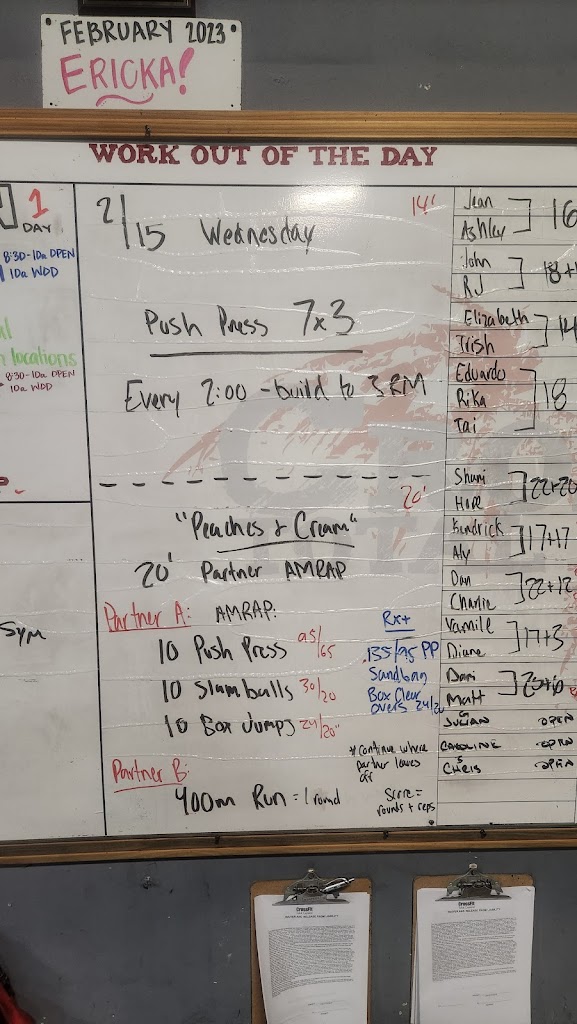 FEBRUARY 2023
ERICKA!
WORK OUT OF THE DAY
1
DAY
8:30-10a OPEN
10a WOD
locations
8:30-10a OPEN
10a WOD
SYM
2/15 Wednesday
14'
Push Press 7x3
Every 2:00 - build to 3RM
20'
"Peaches & Cream"
20' Partner AMRAP
Partner A: AMRAP:
10 Push Press 95/65
10 Slamballs 30/20
10 Box Jumps 24/20"
Rx+
135/95 PP
Sandbag
Box Clear
overs 24/20
Partner B:
400m Run = 1 round
* continue where
partner leaves
off
Score =
rounds + reps
Jean
Ashley
16
John
RJ
18+
Elizabeth
Trish
14
Eduardo
Rika
Tai
18
Shani
Hope
22+20
Kendrick
Aly
17+17
Dan
Charlie
22+12
Yamile
Diane
17+3
Dani
Matt
JULIAN OPEN
CAROLINE OPEN
CHRIS OPEN
CrossFit